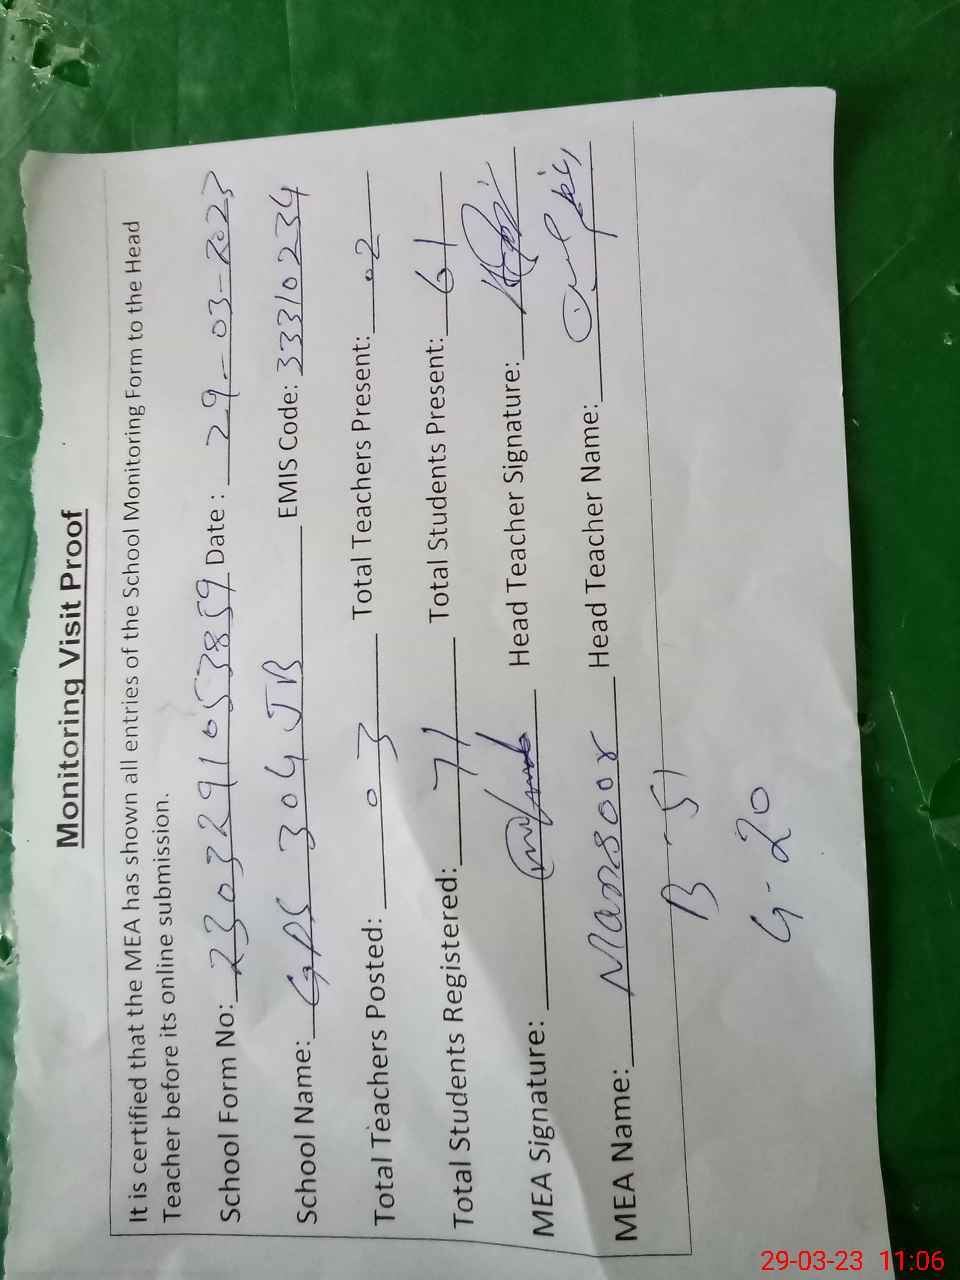 Monitoring Visit Proof
It is certified that the MEA has shown all entries of the School Monitoring Form to the Head
Teacher before its online submission.
School Form No: 2303291053859 Date: 29-03-2023
School Name: GPS 304 JB EMIS Code: 33310234
Total Teachers Posted: 03 Total Teachers Present: 02
Total Students Registered: 71 Total Students Present: 61
MEA Signature: Head Teacher Signature:
MEA Name: Mansoor Head Teacher Name:
B-51
G-20
29-03-23 11:06